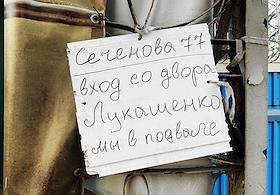 Сеченова 77
вход со двора
Лукашенко
мы в подвале